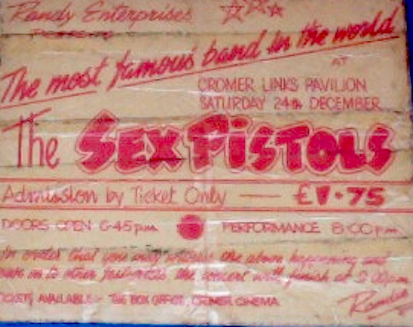 Randy Enterprises
PRESENTS
The most famous band in the world
AT
CROMER LINKS PAVILION
SATURDAY 24th DECEMBER
The SEX PISTOLS
Admission by Ticket Only — £1·75
DOORS OPEN 6·45pm PERFORMANCE 8:00pm
In order that you may witness the above happening and
on to other festivities the concert will finish at
TICKETS AVAILABLE THE BOX OFFICE, CROMER CINEMA